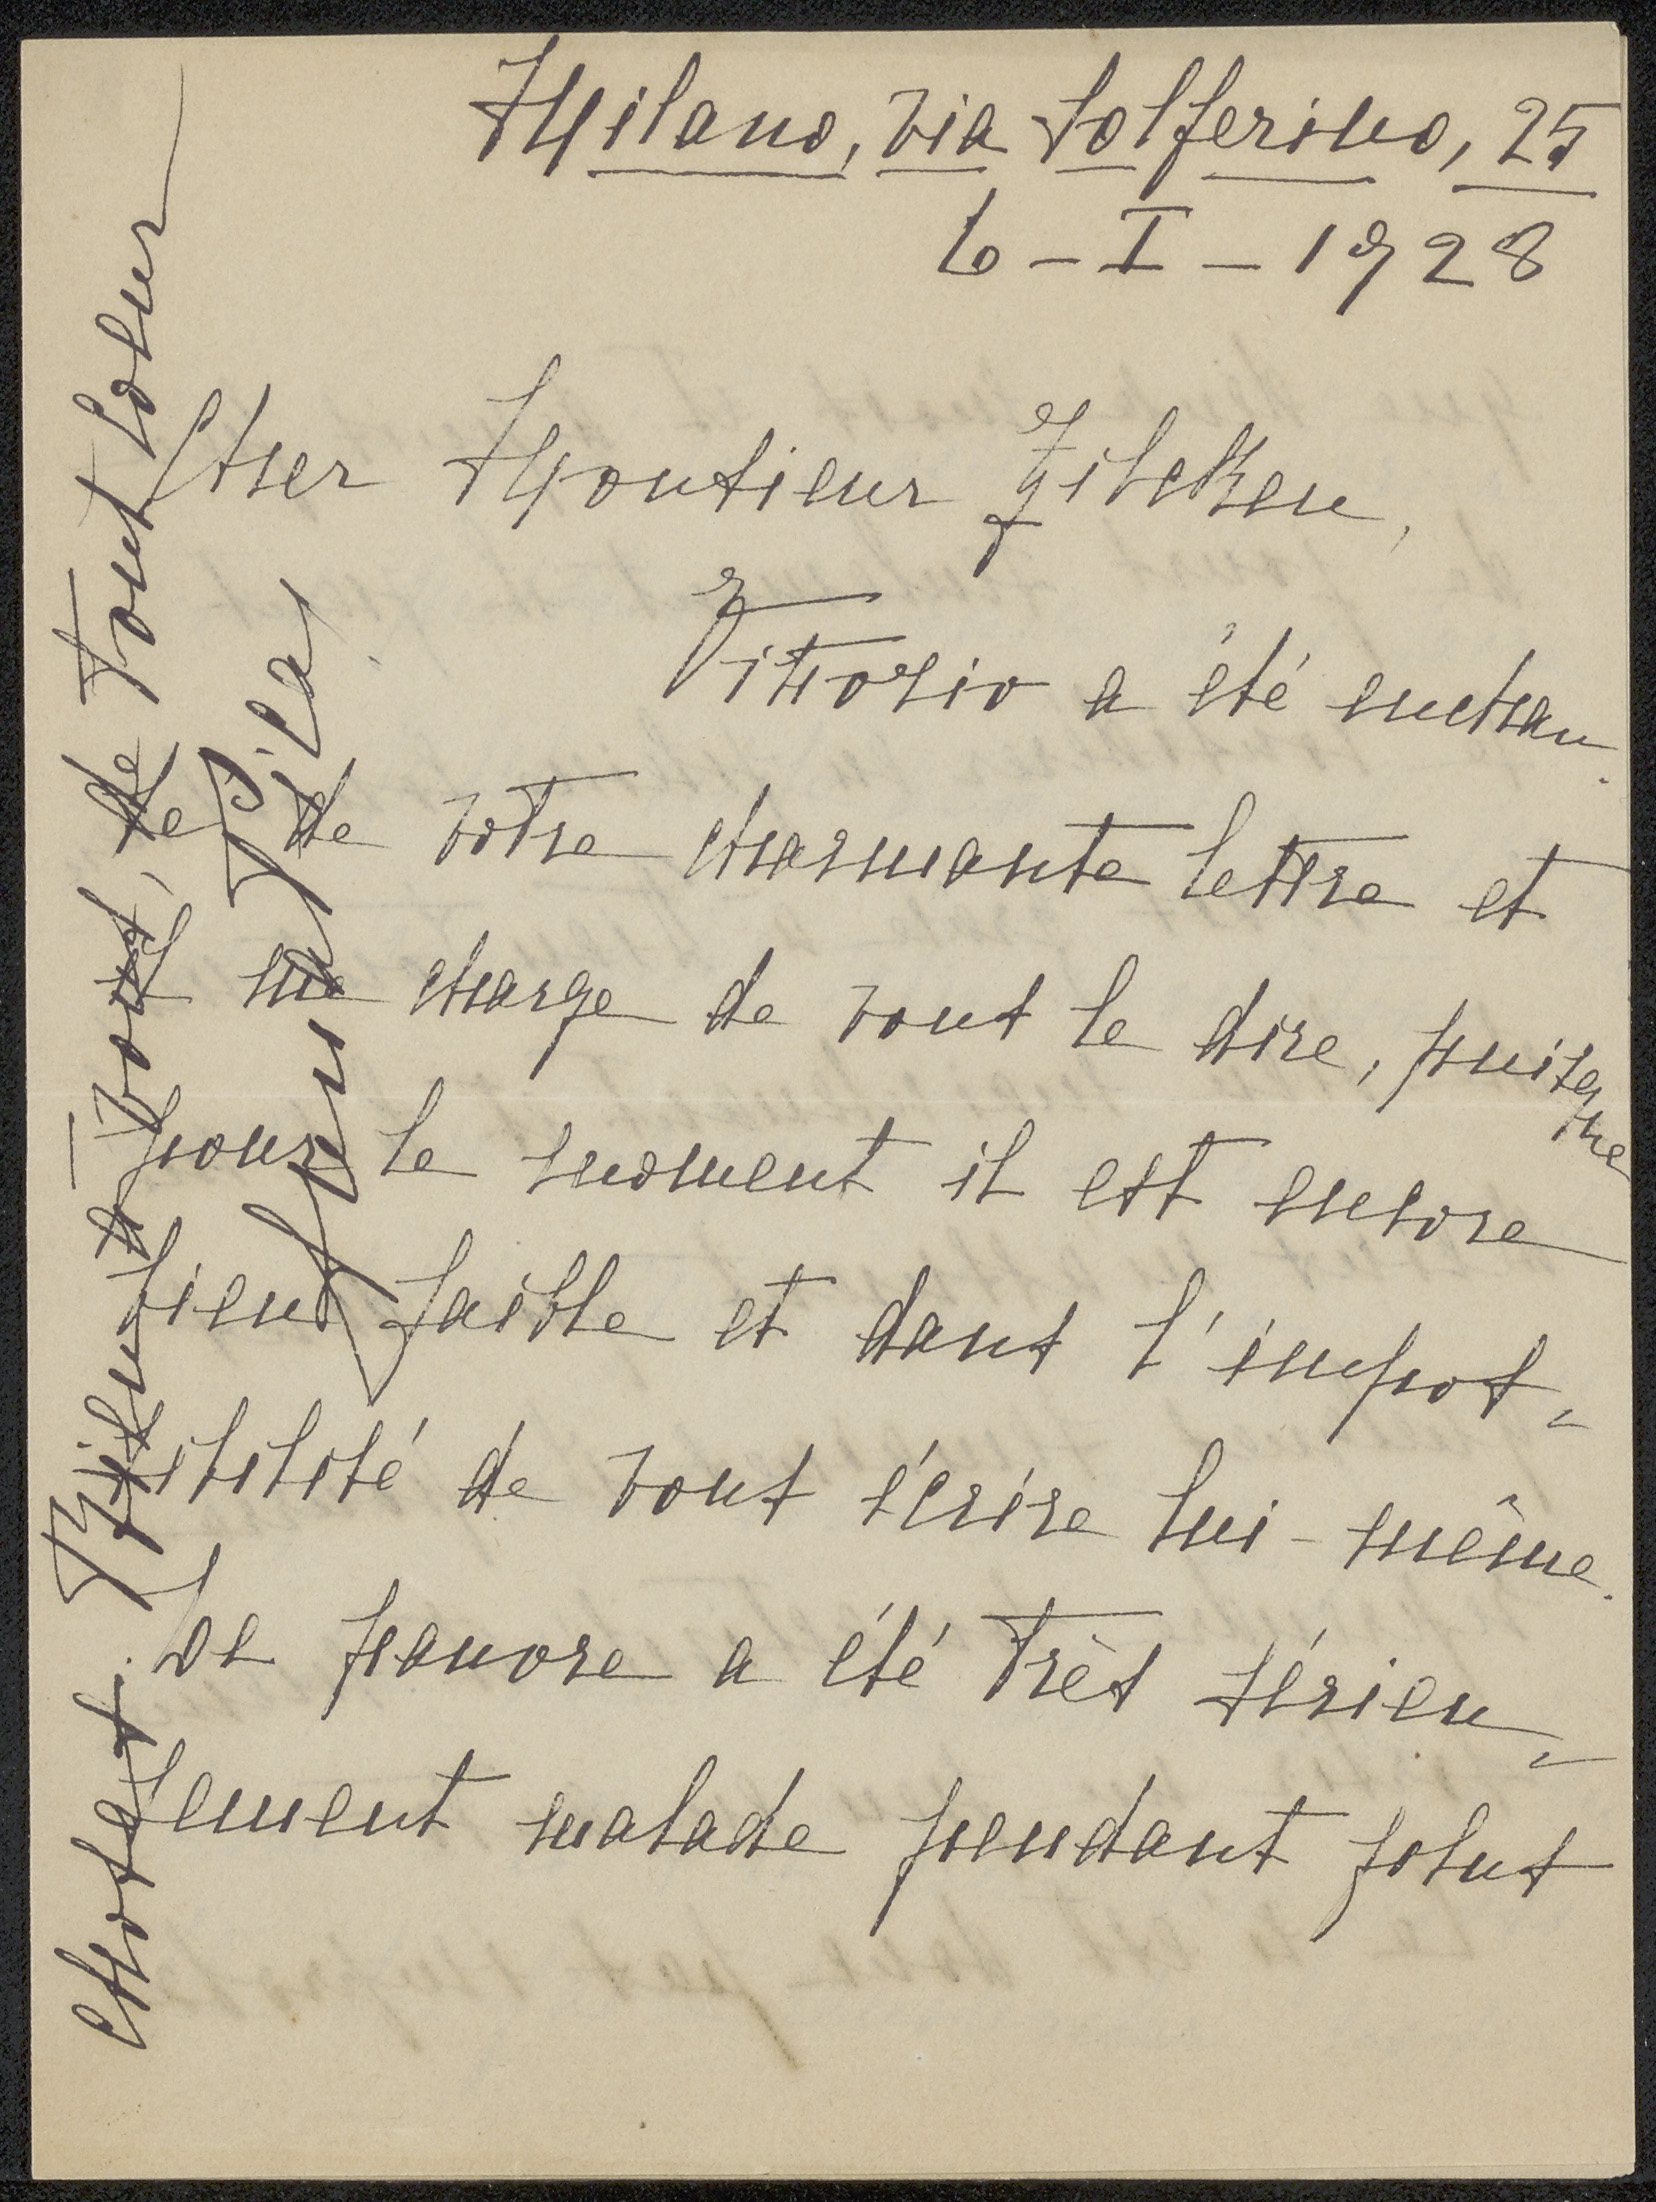 Milano, via Solferino, 25
6 - I - 1928
Cher Monsieur Zilcken,
Vittorio a été enchan-
té de votre charmante lettre et
me charge de vous le dire, puisque
pour le moment il est encore
bien faible et dans l'impos=
sibilité de vous écrire lui-même.
Le pauvre a été très sérieu=
sement malade pendant plus
choses. Bien à vous, de tout coeur
Pica